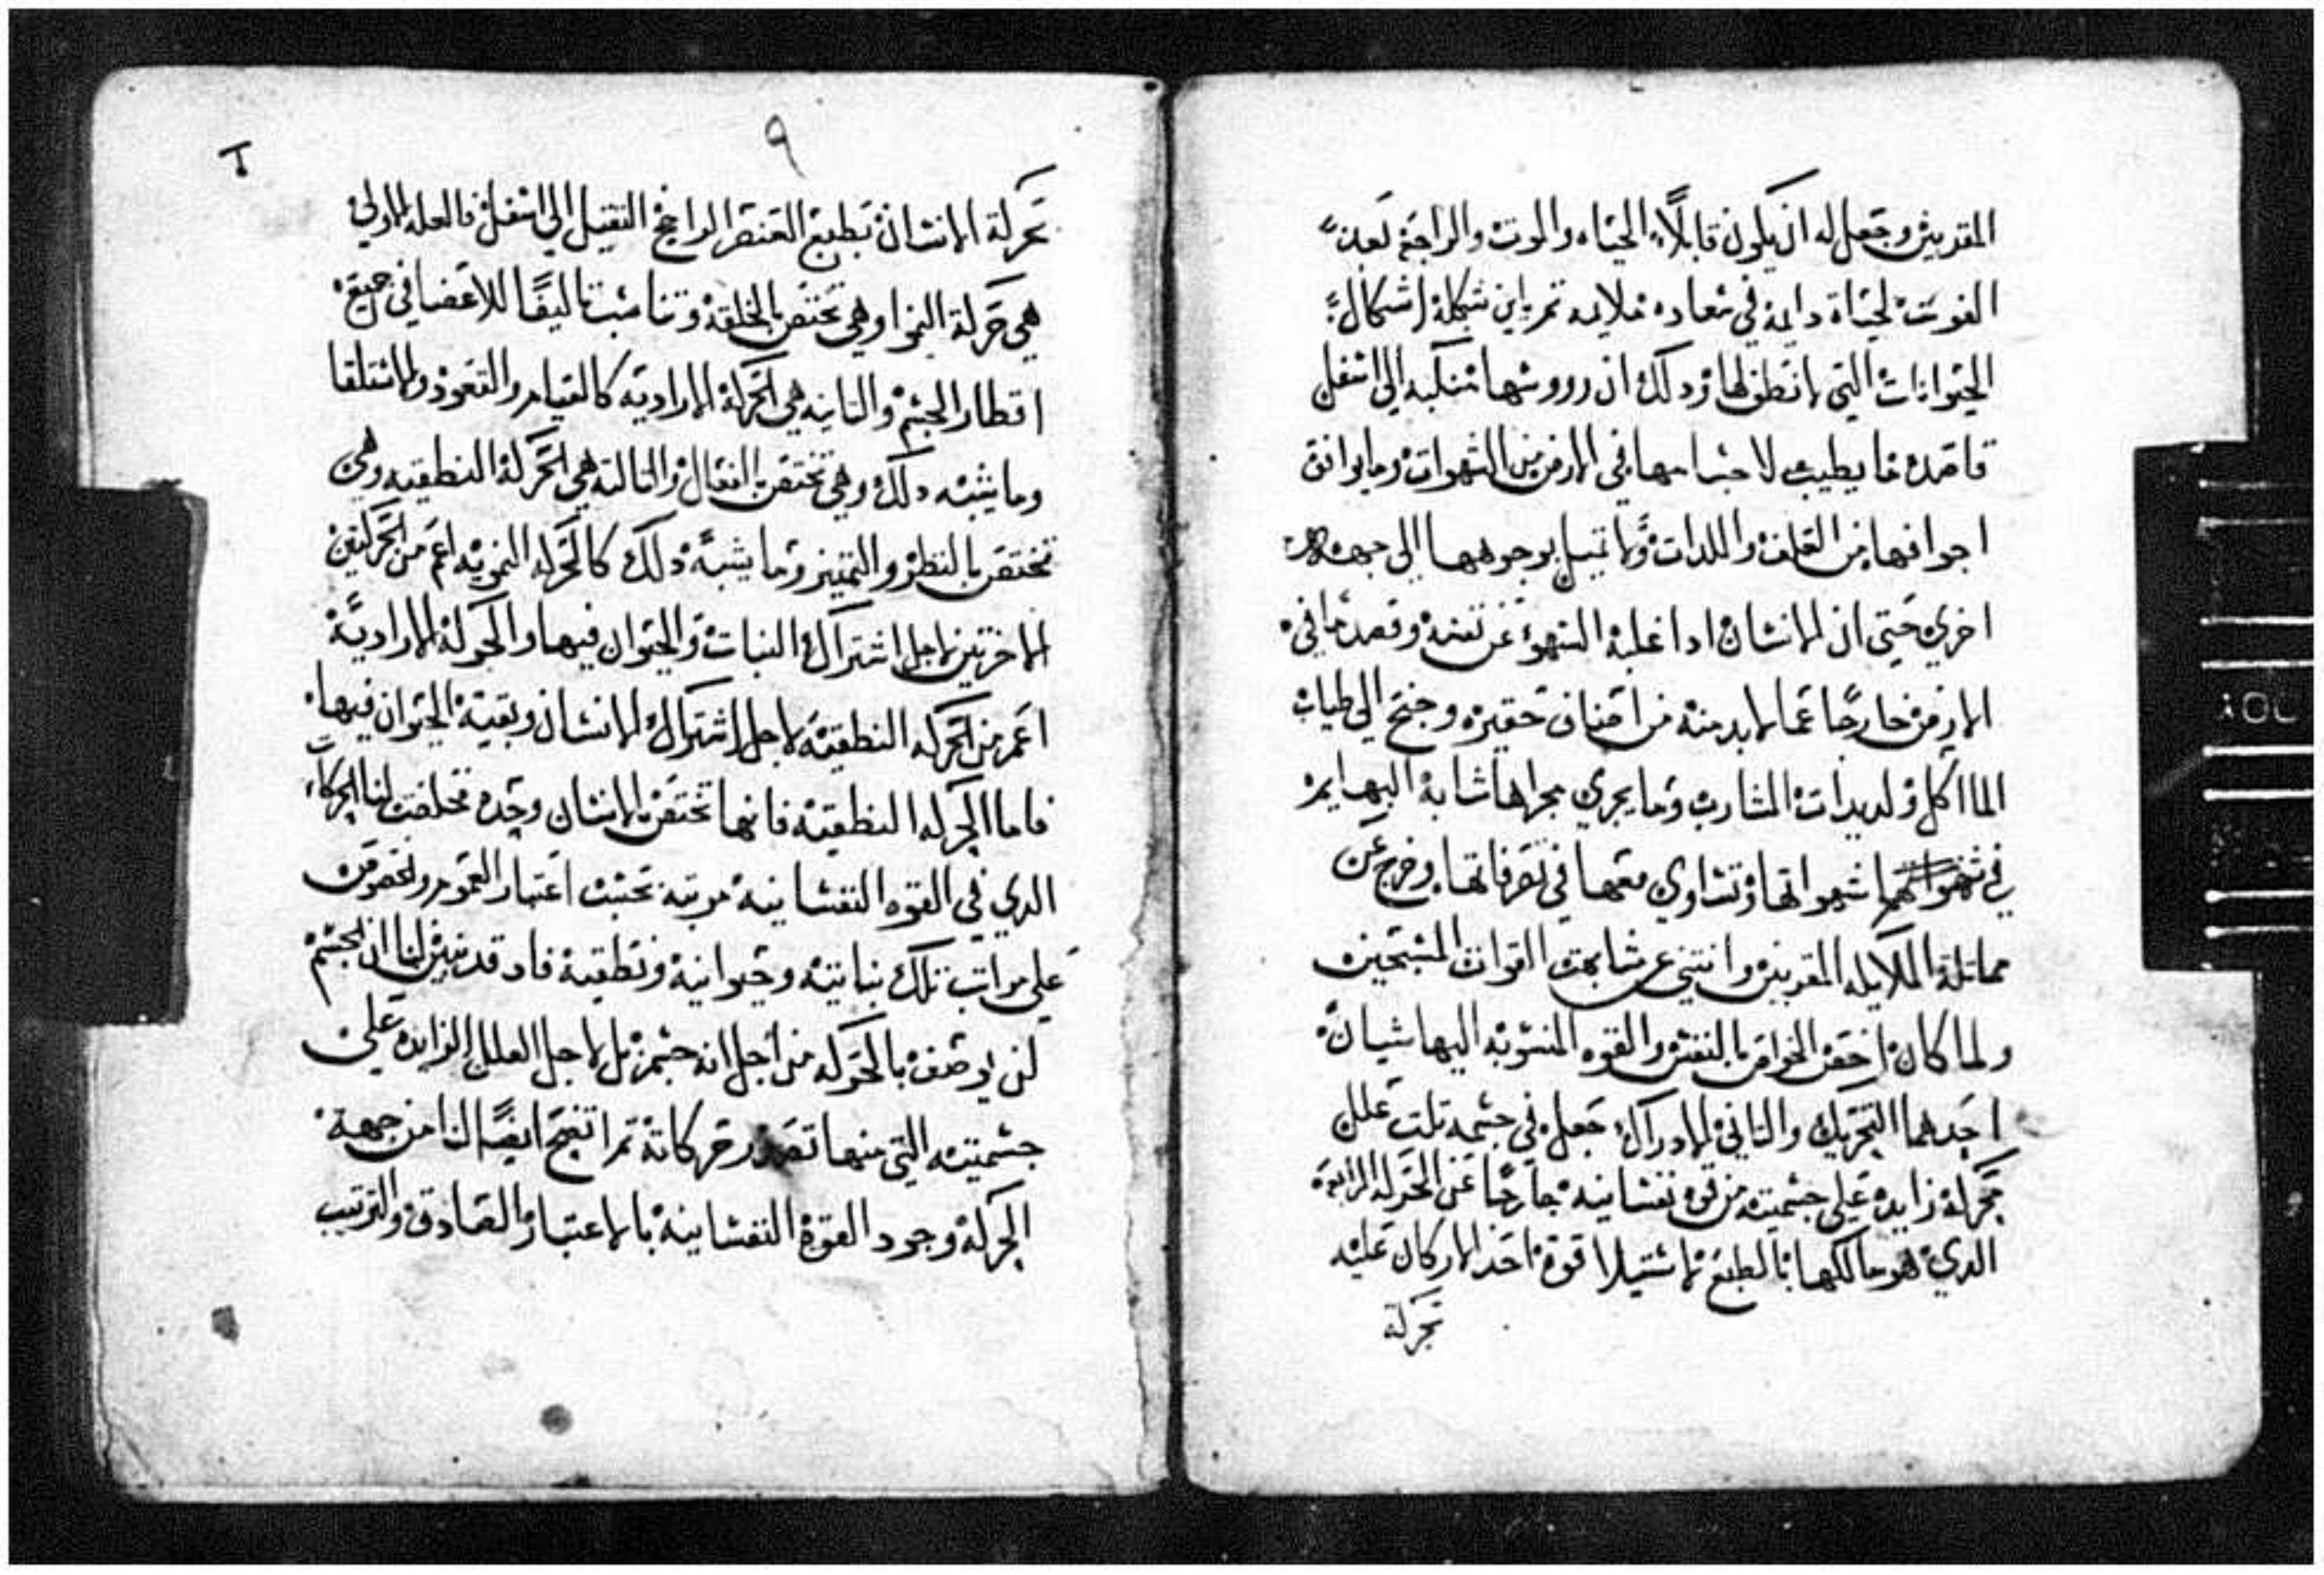 المقربين وجعل له ان يكون قابلاً الحياه والموت والراحه بعد
الفوت لحياة دايمة في سعاده ملايمه ثم باين شكله اشكال
الحيوانات التي لا نطق لها وذلك ان رووسها منكبه الي اسفل
قاصده ما يطيب لاجسامها في الارض من الشهوات وما يوافق
اجوافها من العلف واللدات ولا تميل بوجوهها الي جهه
اخري حتي ان الانسان ادا غلبة الشهوة عن نفسه وقصد ما في
الارض خارجا عما لابد منه من اصناف حقيره وجنح الي طيبات
الماكل ولديدات المشارب وما يجري مجراها شابه البهايم
في شهواتها وتساوي معها في تصرفاتها وخرج عن
مماتلة الملايكه المقربين وانتني عن مشابهت القوات المسبحين
ولما كان اخص الخواص بالنفس والقوه المنسوبه اليها شيان
احدهما التحريك والتاني الادراك جعل في جسمه تلت علل
محركة زايده علي جسميته من قوه نفسانيه خارجا عن الحركه الرابعه
الدي هو مالكها بالطبع لاستيلا قوة احد الاركان عليه
تحركة
٩
تحركة الانسان بطبع العنصر الراجح التقيل الي اسفل فالعله الاولي
هي حركة النموا وهي تختص بالخلقه وتناسبت تاليفًا للاعضا في جميع
اقطار الجسم والتانيه هي الحركة الاراديه كالقيام والقعود والاستلقا
وما يشبه دلك وهي تختص بالفعال والتالته هي الحركة النطقيه وهي
تختص بالنطر والتمييز وما يشبه دلك كالحركه النمويه اعم من الحركتين
الاخرتين لاجل اشتراك النبات والحيوان فيها والحركة الاراديه
اعم من الحركه النطقيه لاجل اشتراك الانسان وبقية الحيوان فيها
فاما الحركه النطقيه فانها تختص الانسان وحده فخلصت لنا الحركات
الدي في القوه النفسانيه مرتبه بحسب اعتبار العموم والخصوص
علي مراتب تلك نباتيه وحيوانيه ونطقيه فاد قد تبين لنا ان الجسم
لن يوصف بالحركه من اجل انه جسم بل لاجل العلل الزايده علي
جسميته التي منها تصدر حركاته تم اتضح ايضًا لنا من جهة
الحركة وجود القوة النفسانيه بالاعتبار الصادق والترتيب